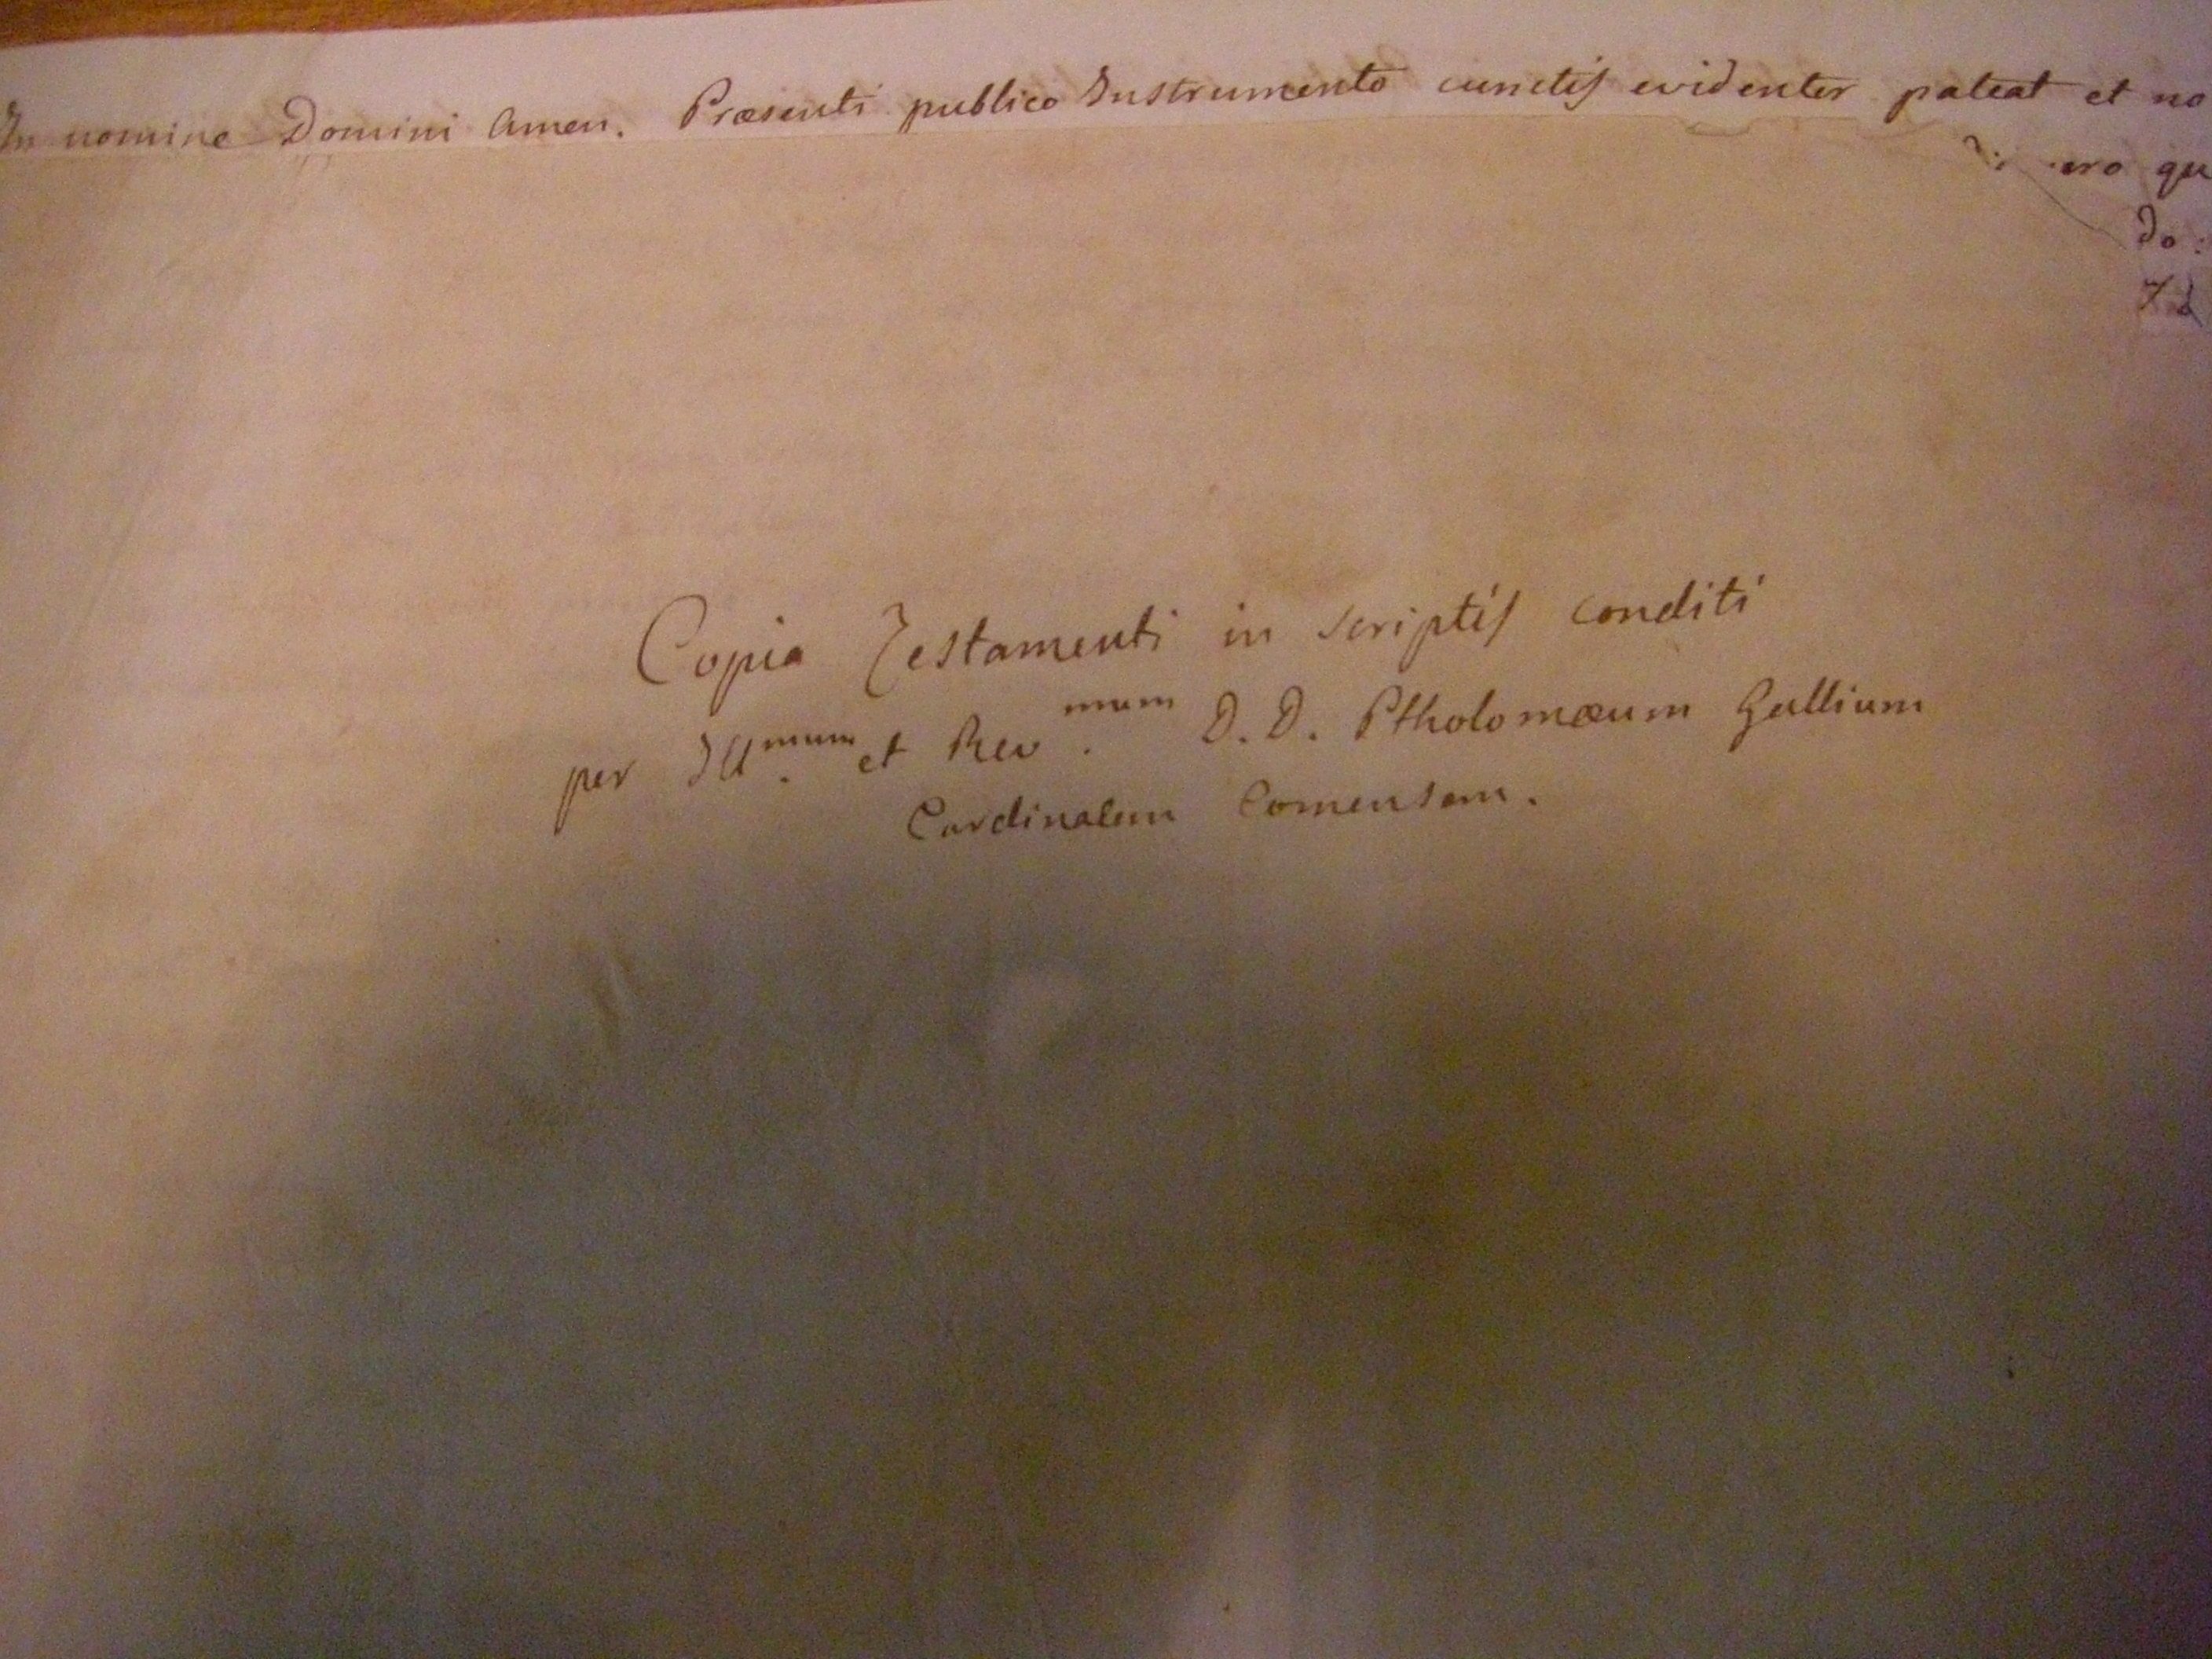 In nomine Domini Amen. Præsenti publico Instrumento cunctis evidenter pateat et no
qu
do:
Copia Testamenti in scriptis conditi
per Ill.mum et Rev.mum D. D. Ptholomæum Gallium
Cardinalem Comensem.